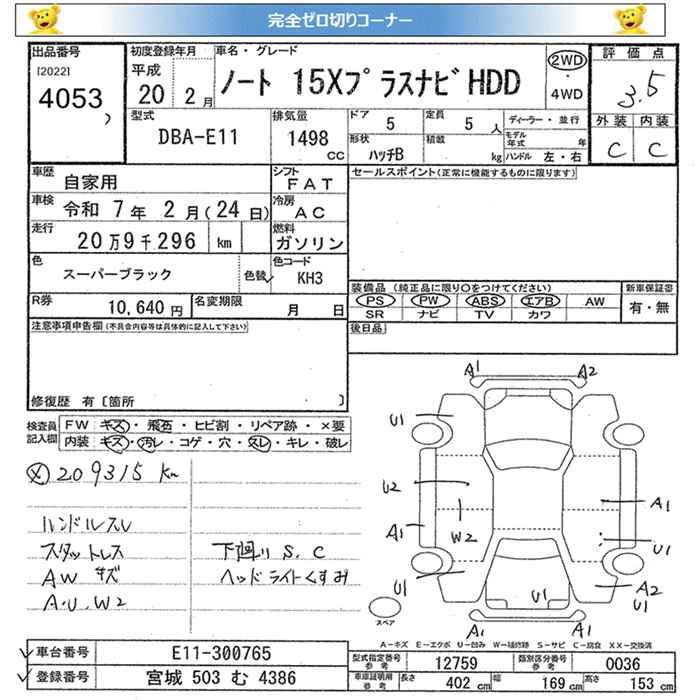 完全ゼロ切りコーナー
出品番号
[2022]
4053
初度登録年月
平成
20 2月
車名・グレード
ノート 15Xプラスナビ HDD
2WD
・
4WD
評価点
3.5
外装 内装
C C
型式
DBA-E11
排気量
1498
CC
ドア
5
定員
5 人
形状
ハッチB
積載
kg
ディーラー・並行
モデル年式 年
ハンドル 左・右
車歴
自家用
シフト
FAT
車検
令和 7年 2月(24日)
冷房
AC
走行
20万9千296 km
燃料
ガソリン
色
スーパーブラック
色替
色コード
KH3
R券
10,640 円
名変期限
月 日
セールスポイント(正常に機能するものに限ります)
装備品 (純正品に限り〇をつけてください)
PS PW ABS エアB AW
SR ナビ TV カワ
新車保証書
有・無
後日品
注意事項申告欄(不具合内容等は具体的に記入して下さい)
修復歴 有〔箇所 〕
検査員記入欄
FW キズ・飛石・ヒビ割・リペア跡・×要
内装 キズ・汚レ・コゲ・穴・スレ・キレ・破レ
209315 km
ハンドルスレ
スタットレス
AW キズ
A.U.W2
下廻り S.C
ヘッドライトくすみ
A1 A2
U1
U2
W2
A1
A1
U1
U1
A2
U1
U1
A1 A1
スペア
A-キズ E-エクボ U-凹み W-補修跡 S-サビ C-腐食 XX-交換済
車台番号
E11-300765
登録番号
宮城 503 む 4386
型式指定番号 参考
12759
類別区分番号 参考
0036
車庫証明用 参考
長さ 402 cm
幅 169 cm
高さ 153 cm